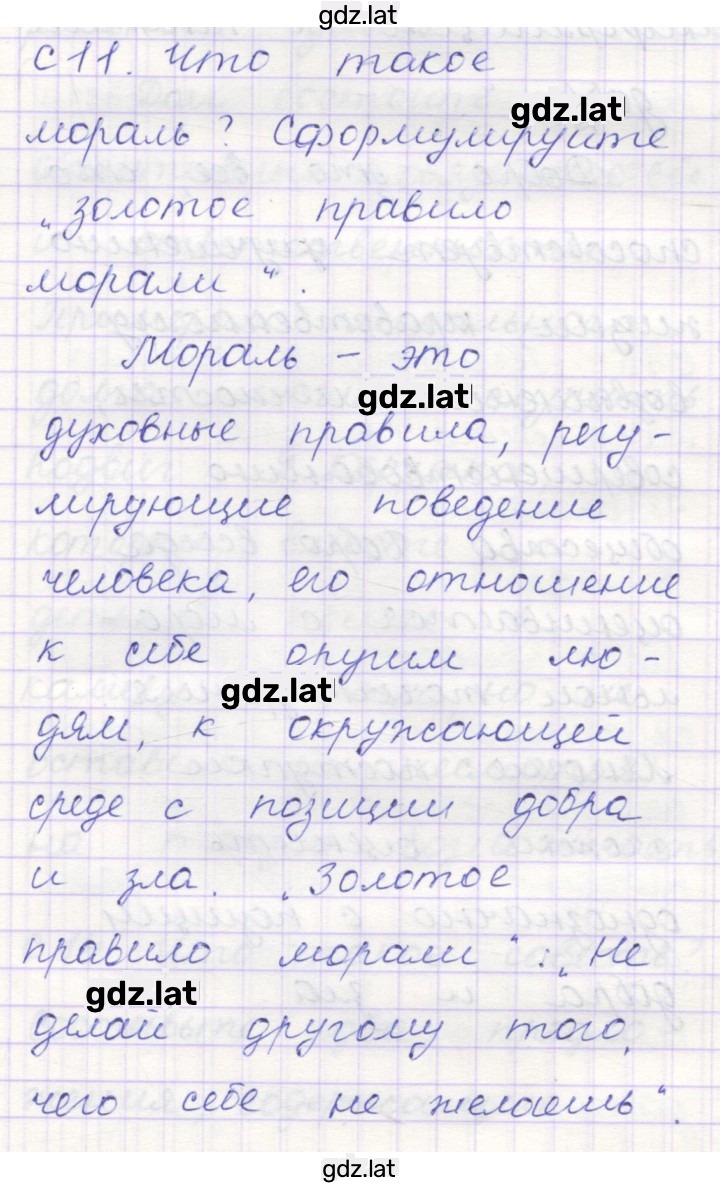 gdz.lat
С 11. Что такое
gdz.lat
мораль? Сформулируйте
„золотое правило
морали“.
Мораль – это
gdz.lat
духовные правила, регу-
лирующие поведение
человека, его отношение
к себе другим лю-
gdz.lat
дям, к окружающей
среде с позиции добра
и зла. „Золотое
правило морали“: „Не
gdz.lat
делай другому того,
чего себе не желаешь“.
gdz.lat